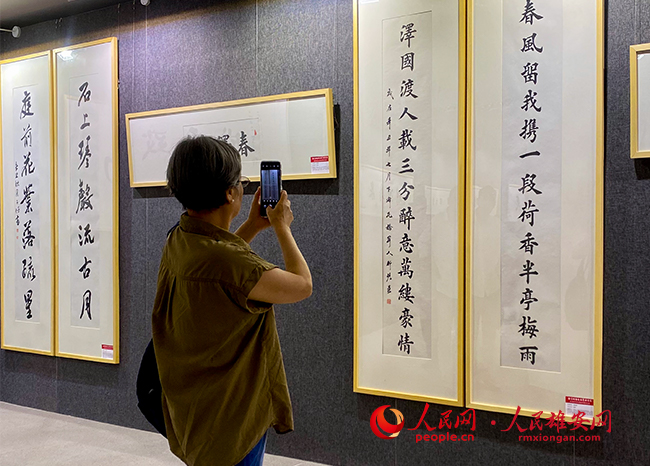 春風留我攜一段荷香半亭梅雨
澤國渡人載三分醉意萬縷豪情
春
石上琴聲流古月
庭前花葉落疏星
人民网·人民雄安网
people.cn rmxiongan.com